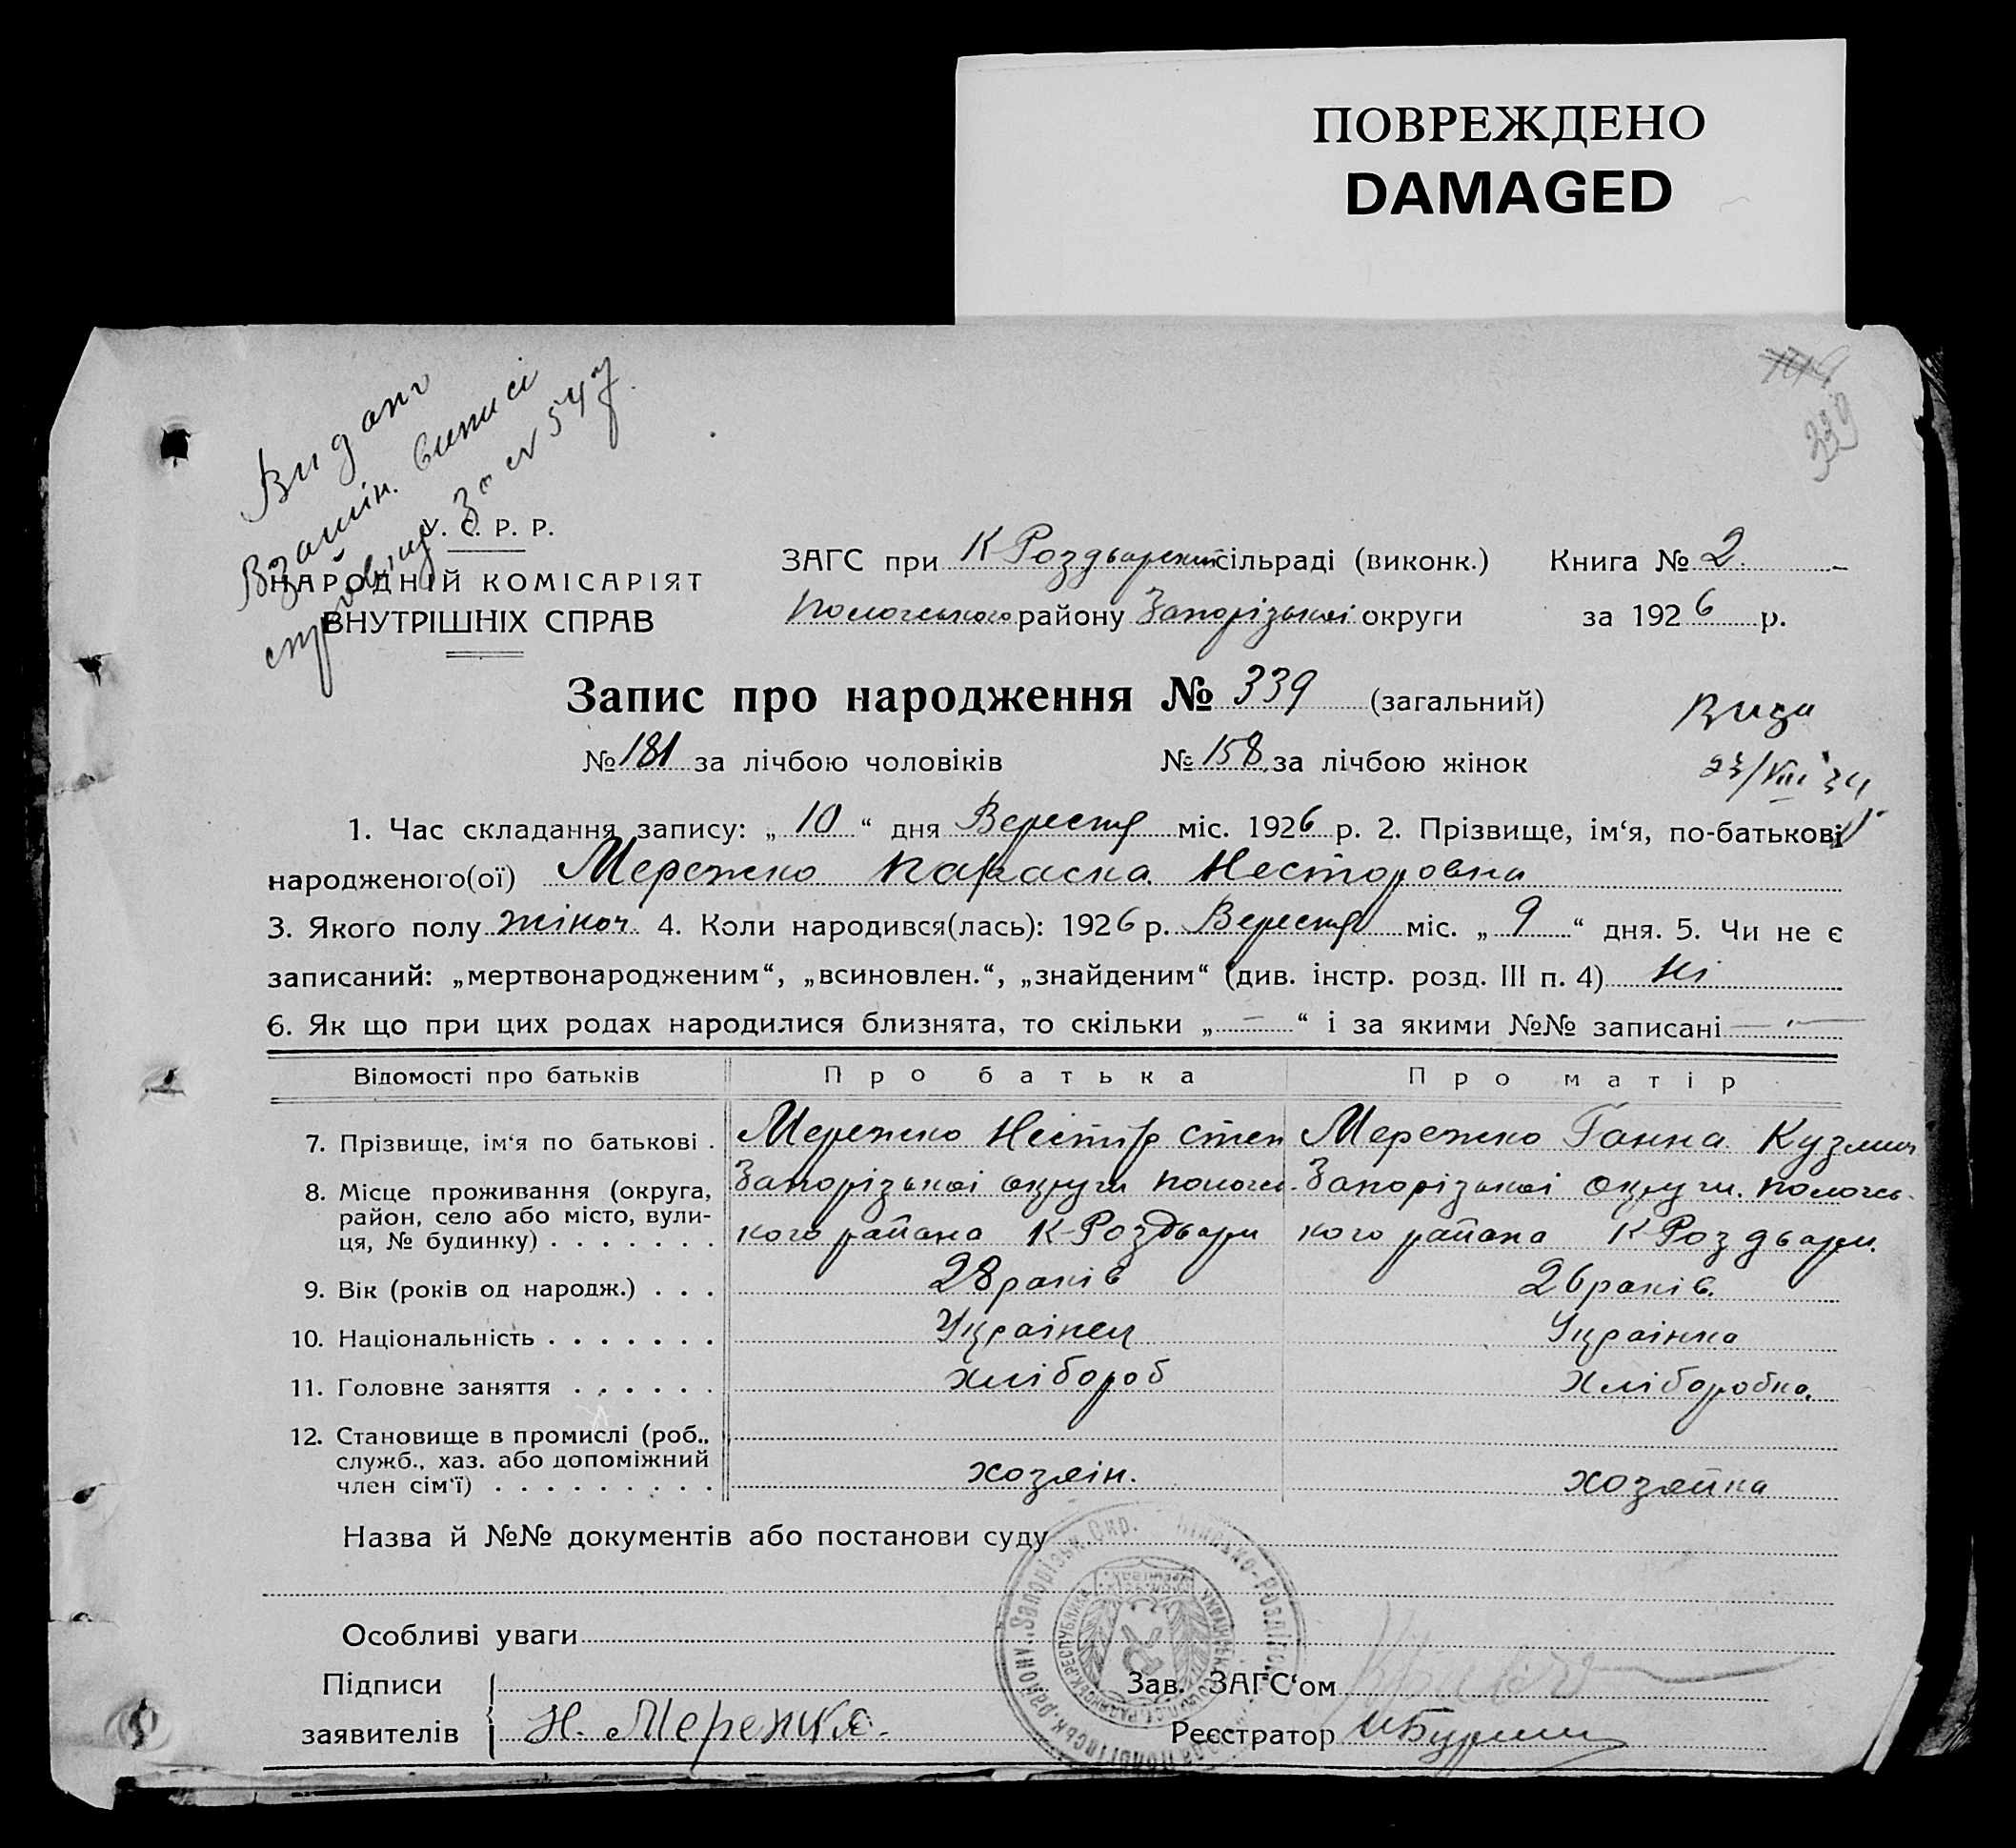 ПОВРЕЖДЕНО
DAMAGED
339
Видано
Взамін. виписі
за № 547.
У. С. Р. Р.
НАРОДНІЙ КОМІСАРІЯТ
ВНУТРІШНІХ СПРАВ
ЗАГС при К Роздварскій сільраді (виконк.) Книга № 2.
Пологського району Запорізької округи за 1926 р.
Запис про народження № 339 (загальний)
№ 181 за лічбою чоловіків № 158 за лічбою жінок
23/VIII 34
1. Час складання запису: „ 10 “ дня Вересня міс. 1926 р. 2. Прізвище, ім‘я, по-батькові
народженого(ої) Мережко Параска Несторовна
3. Якого полу жіноч. 4. Коли народився(лась): 1926 р. Вересня міс. „ 9 “ дня. 5. Чи не є
записаний: „мертвонародженим“, „всиновлен.“, „знайденим“ (див. інстр. розд. III п. 4) Ні
6. Як що при цих родах народилися близнята, то скільки „ — “ і за якими №№ записані —
Відомості про батьків Про батька Про матір
7. Прізвище, ім‘я по батькові . Мережко Нестір Степ Мережко Ганна Кузмин
8. Місце проживання (округа, Запорізької округи Пологсь- Запорізької округи. Пологсь-
район, село або місто, вули-
ця, № будинку) . . . . . . . кого района К-Роздвари кого района К Роздвари.
9. Вік (років од народж.) . . . 28 років 26 років.
10. Національність . . . . . . . Українец Українка
11. Головне заняття . . . . . . хлібороб Хліборобка.
12. Становище в промислі (роб.,
служб., хаз. або допоміжний
член сім‘ї) . . . . . . . . . хозяін. хозяйка
Назва й №№ документів або постанови суду
Особливі уваги
Підписи
заявителів Н. Мережко.
Зав. ЗАГС‘ом
Реєстратор